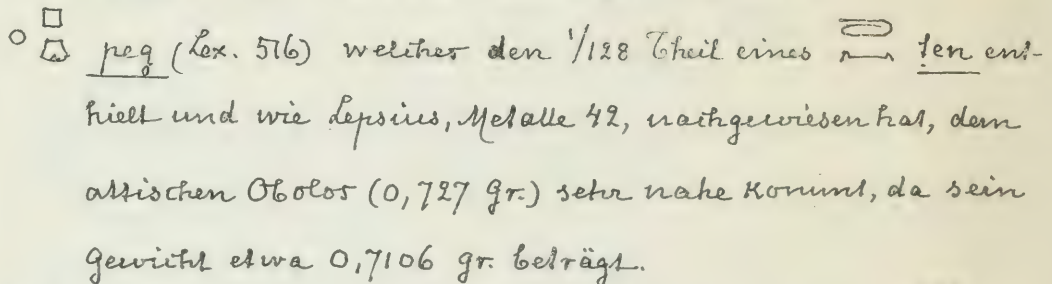 peg (Lex. 516) welcher den 1/128 Theil eines ten ent-
hielt und wie Lepsius, Metalle 42, nachgewiesen hat, dem
attischen Obolos (0,727 gr.) sehr nahe kommt, da sein
Gewicht etwa 0,7106 gr. beträgt.